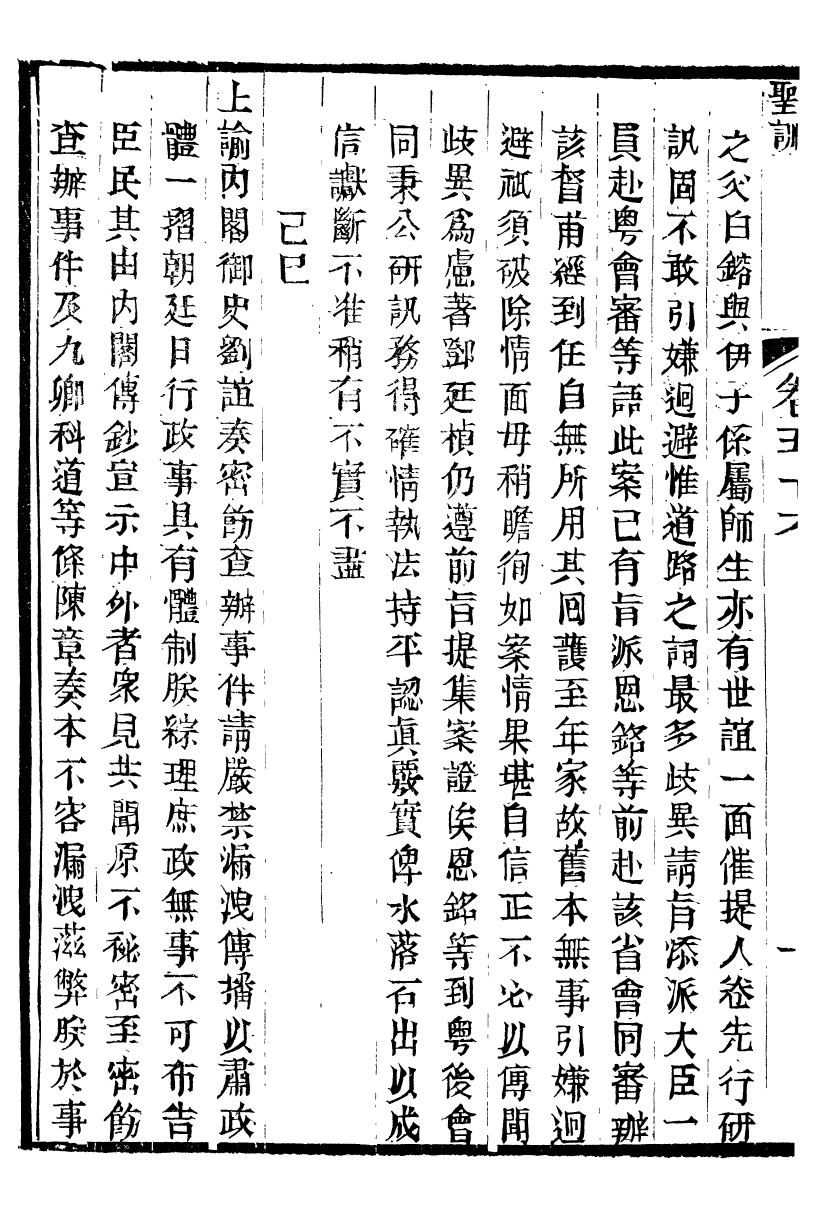 聖訓
卷五十六
一
之父白鎔與伊子係屬師生亦有世誼一面催提人卷先行研
訊固不敢引嫌迴避惟道路之詞最多歧異請旨添派大臣一
員赴粵會審等語此案已有旨派恩銘等前赴該省會同審辦
該督甫經到任自無所用其回護至年家故舊本無事引嫌迴
避祇須破除情面毋稍瞻徇如案情果堪自信正不必以傳聞
歧異爲慮著鄧廷楨仍遵前旨提集案證俟恩銘等到粵後會
同秉公研訊務得確情執法持平認眞覈實俾水落石出以成
信讞斷不准稍有不實不盡
己巳
上諭內閣御史劉誼奏密飭查辦事件請嚴禁漏洩傳播以肅政
體一摺朝廷日行政事具有體制朕綜理庶政無事不可布告
臣民其由內閣傳鈔宣示中外者衆見共聞原不祕密至密飭
查辦事件及九卿科道等條陳章奏本不容漏洩滋弊朕於事